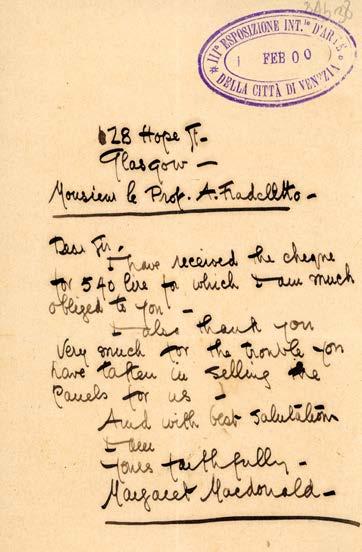 IIIª ESPOSIZIONE INT.le D'ARTE
1 FEB 00
DELLA CITTÀ DI VENEZIA
128 Hope St.
Glasgow —
Monsieur le Prof. A. Fradeletto —
Dear Sir.
I have received the cheque
for 540 lire for which I am much
obliged to you. —
I also thank you
very much for the trouble you
have taken in selling the
Panels for us —
And with best salutation
I am
Yours faithfully —
Margaret Macdonald —